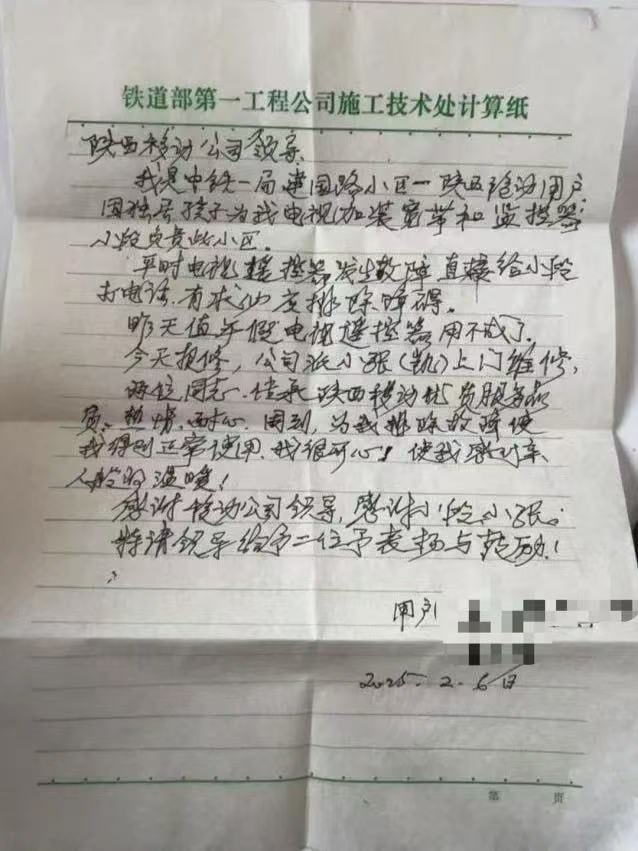 铁道部第一工程公司施工技术处计算纸
陕西移动公司领导.
我是中铁一局建国路小区一陕西移动用户
因独居孩子为我电视加装宽带和监控器.
小段负责此小区。
平时电视遥控器发生故障直接给小段
打电话.有求必应排除障碍。
昨天值午假电视遥控器用不成了.
今天报修,公司派小张(凯)上门维修,
两位同志.传承陕西移动优质服务品
质、热情.耐心.周到,为我排除故障使
我得到正常使用.我很开心!使我感到亲
人般的温暖!
感谢移动公司领导,感谢小段.小张.
特请领导给予二位予表扬与鼓励!
用户
2025.2.6日
第 页